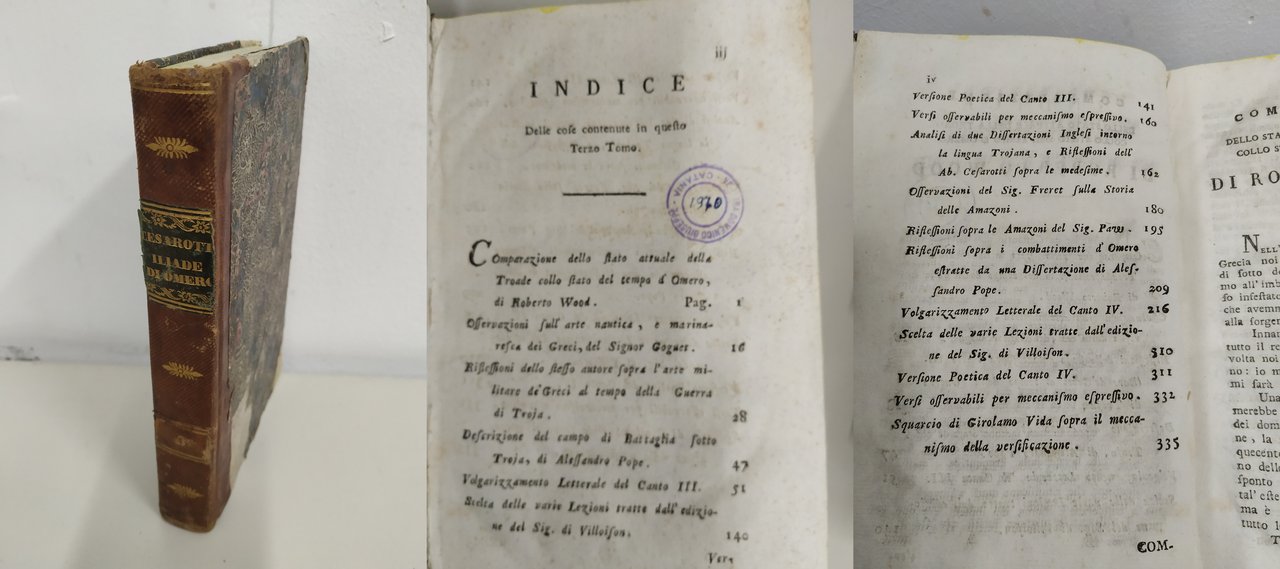 CESAROTTI
ILIADE
DI OMERO
iij
INDICE
Delle coſe contenute in queſto
Terzo Tomo.
CATANIA
1970
Comparazione dello ſtato attuale della
Troade collo ſtato del tempo d'Omero,
di Roberto Wood. Pag. 1
Oſſervazioni ſull'arte nautica, e marina-
reſca dei Greci, del Signor Goguet. 16
Rifleſſioni dello ſteſſo autore ſopra l'arte mi-
litare de'Greci al tempo della Guerra
di Troja. 28
Deſcrizione del campo di Battaglia ſotto
Troja, di Aleſſandro Pope. 47
Volgarizzamento Letterale del Canto III. 51
Scelta delle varie Lezioni tratte dall'edizio-
ne del Sig. di Villoiſon. 140
Ver-
iv
Verſione Poetica del Canto III. 141
Verſi oſſervabili per meccaniſmo eſpreſſivo. 160
Analiſi di due Diſſertazioni Ingleſi intorno
la lingua Trojana, e Rifleſſioni dell'
Ab. Ceſarotti ſopra le medeſime. 162
Oſſervazioni del Sig. Freret ſulla Storia
delle Amazoni. 180
Rifleſſioni ſopra le Amazoni del Sig. Paw. 195
Rifleſſioni ſopra i combattimenti d'Omero
eſtratte da una Diſſertazione di Aleſ-
ſandro Pope. 209
Volgarizzamento Letterale del Canto IV. 216
Scelta delle varie Lezioni tratte dall'edizio-
ne del Sig. di Villoiſon. 310
Verſione Poetica del Canto IV. 311
Verſi oſſervabili per meccaniſmo eſpreſſivo. 332
Squarcio di Girolamo Vida ſopra il mecca-
niſmo della verſificazione. 335
COM-
COM
DELLO STA
COLLO S
DI RO
NELL'
Grecia noi
di ſotto d
mo all'imb
ſo infeſtato
che avemm
alla ſorger
Innar
tutto il re
volta noi
no: io m
mi ſarà
Una
merebbe
dei dom
ne, la
quecento
no delle
ſponto
tal' eſte
ma è
tutto l
T